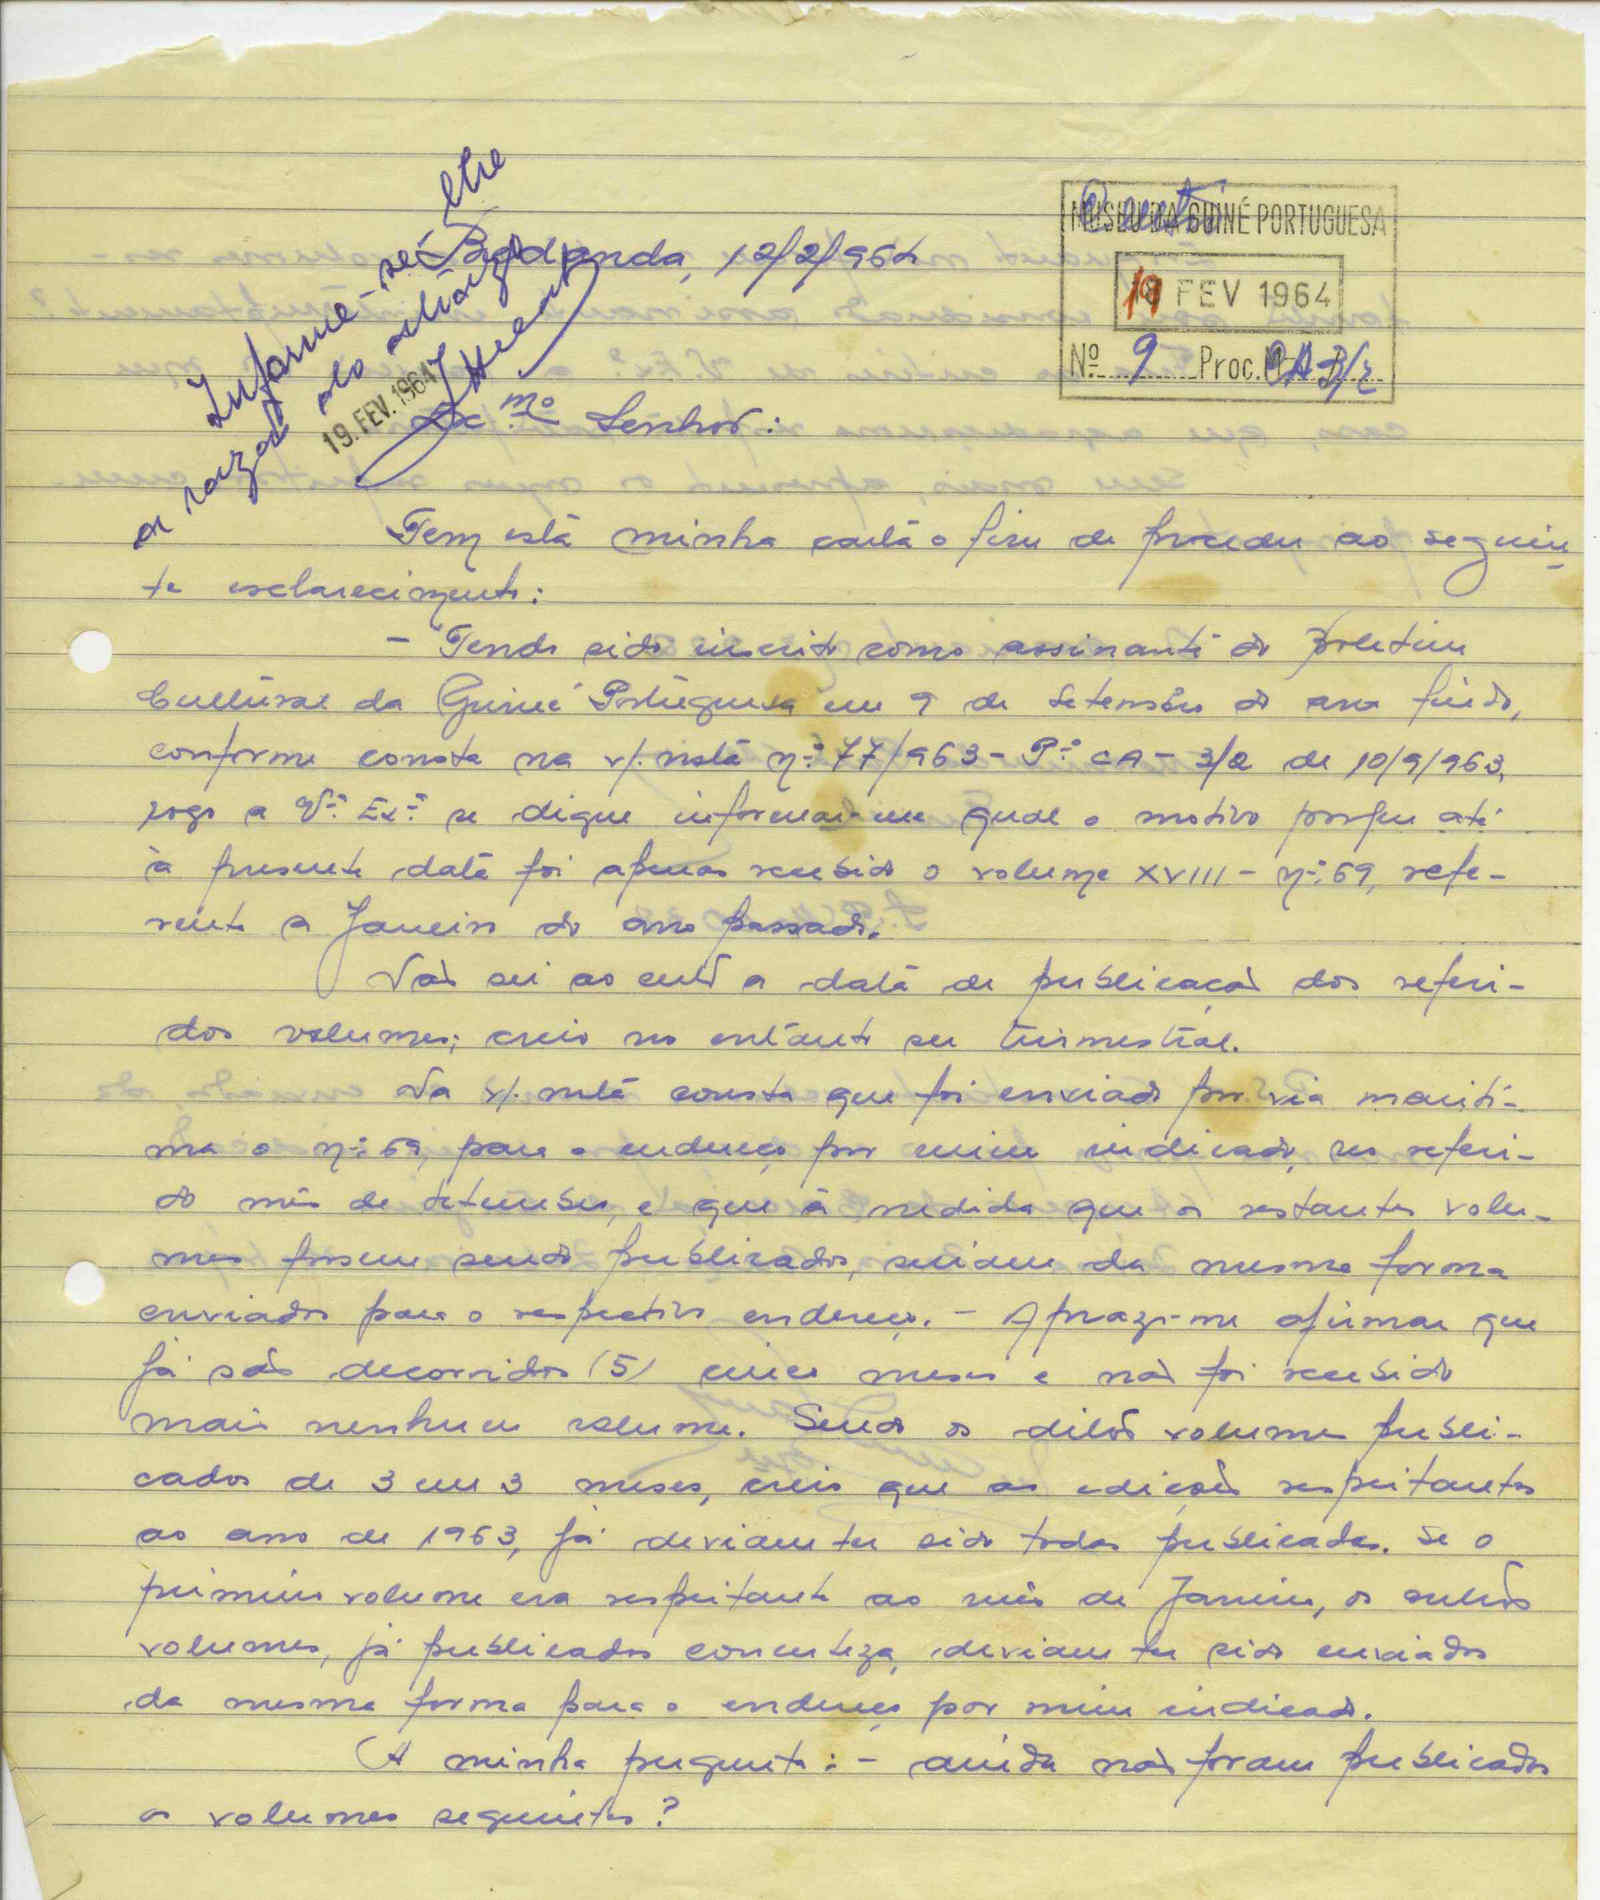 MUSEU DA GUINÉ PORTUGUESA
19 FEV 1964
Nº 9 Proc. CA 3/2
Informe-se
a razão do atrazo
19. FEV. 1964
Bedanda, 12/2/964
Ex.mo Senhor:
Tem esta minha carta o fim de proceder ao seguin
te esclarecimento:
- Tendo sido inscrito como assinante do Boletim
Cultural da Guiné Portuguesa em 9 de Setembro do ano findo,
conforme consta na v/. nota n.º 77/963 - P.º CA - 3/2 de 10/9/963,
rogo a V.ª Ex.ª se digne informar-me qual o motivo porque até
à presente data foi apenas recebido o volume XVIII - n.º 69, refe-
rente a Janeiro do ano passado.
Não sei ao certo a data de publicação dos referi-
dos volumes; creio no entanto ser trimestral.
Na v/. nota consta que foi enviado por via maríti-
ma o n.º 69, para o endereço por mim indicado, no referi-
do mês de Setembro, e que à medida que os restantes volu-
mes fossem sendo publicados, seriam da mesma forma
enviados para o respectivo endereço. - Apraz-me afirmar que
já são decorridos (5) cinco meses e não foi recebido
mais nenhum volume. Sendo os ditos volumes publi-
cados de 3 em 3 meses, creio que as edições respeitantes
ao ano de 1963, já deviam ter sido todas publicadas. Se o
primeiro volume era respeitante ao mês de Janeiro, os outros
volumes, já publicados concerteza, deviam ter sido enviados
da mesma forma para o endereço por mim indicado.
A minha pergunta: - ainda não foram publicados
os volumes seguintes?